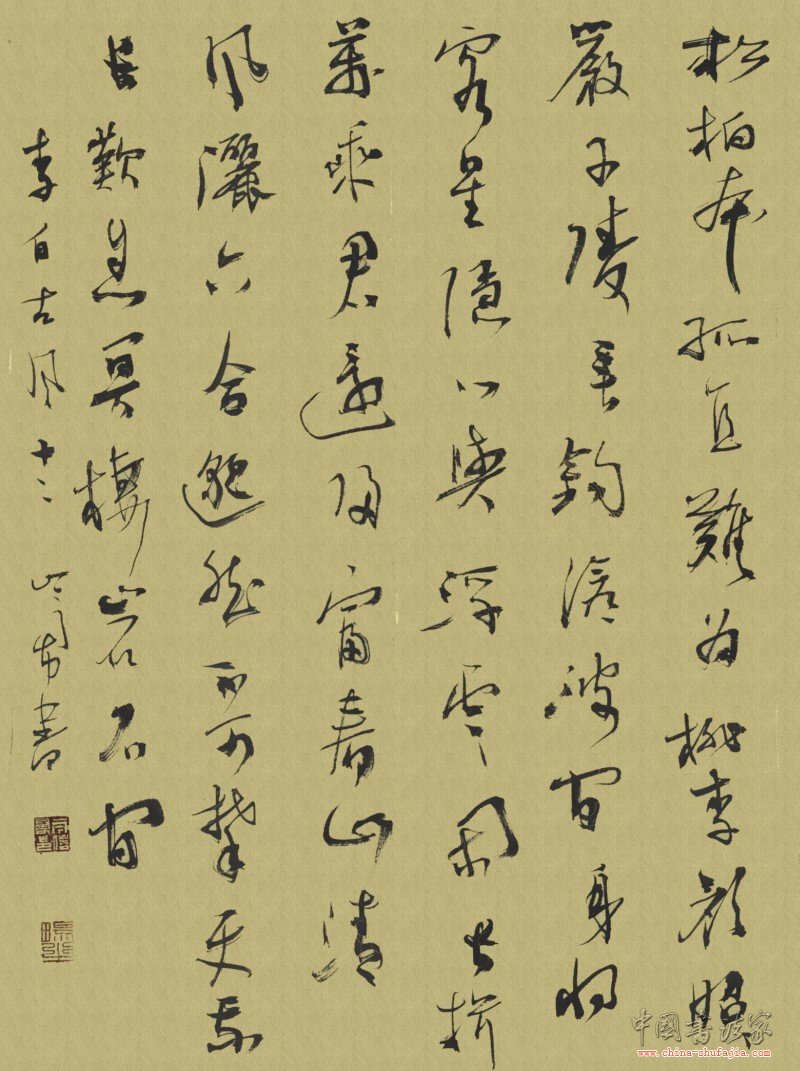 松柏本孤直難為桃李顏昭
嚴子陵垂釣滄波間身將
客星隱心與浮雲閑長揖
萬乘君還歸富春山清
風灑六合邈然不可攀使我
長歎息冥棲岩石間
李白古風十二 書
中國書法家
www.china-shufajia.com